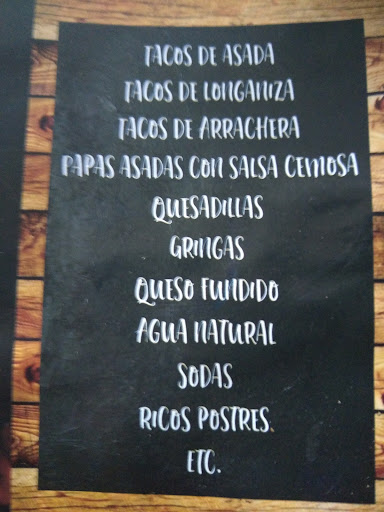 TACOS DE ASADA
TACOS DE LONGANIZA
TACOS DE ARRACHERA
PAPAS ASADAS CON SALSA CEMOSA
QUESADILLAS
GRINGAS
QUESO FUNDIDO
AGUA NATURAL
SODAS
RICOS POSTRES.
ETC.